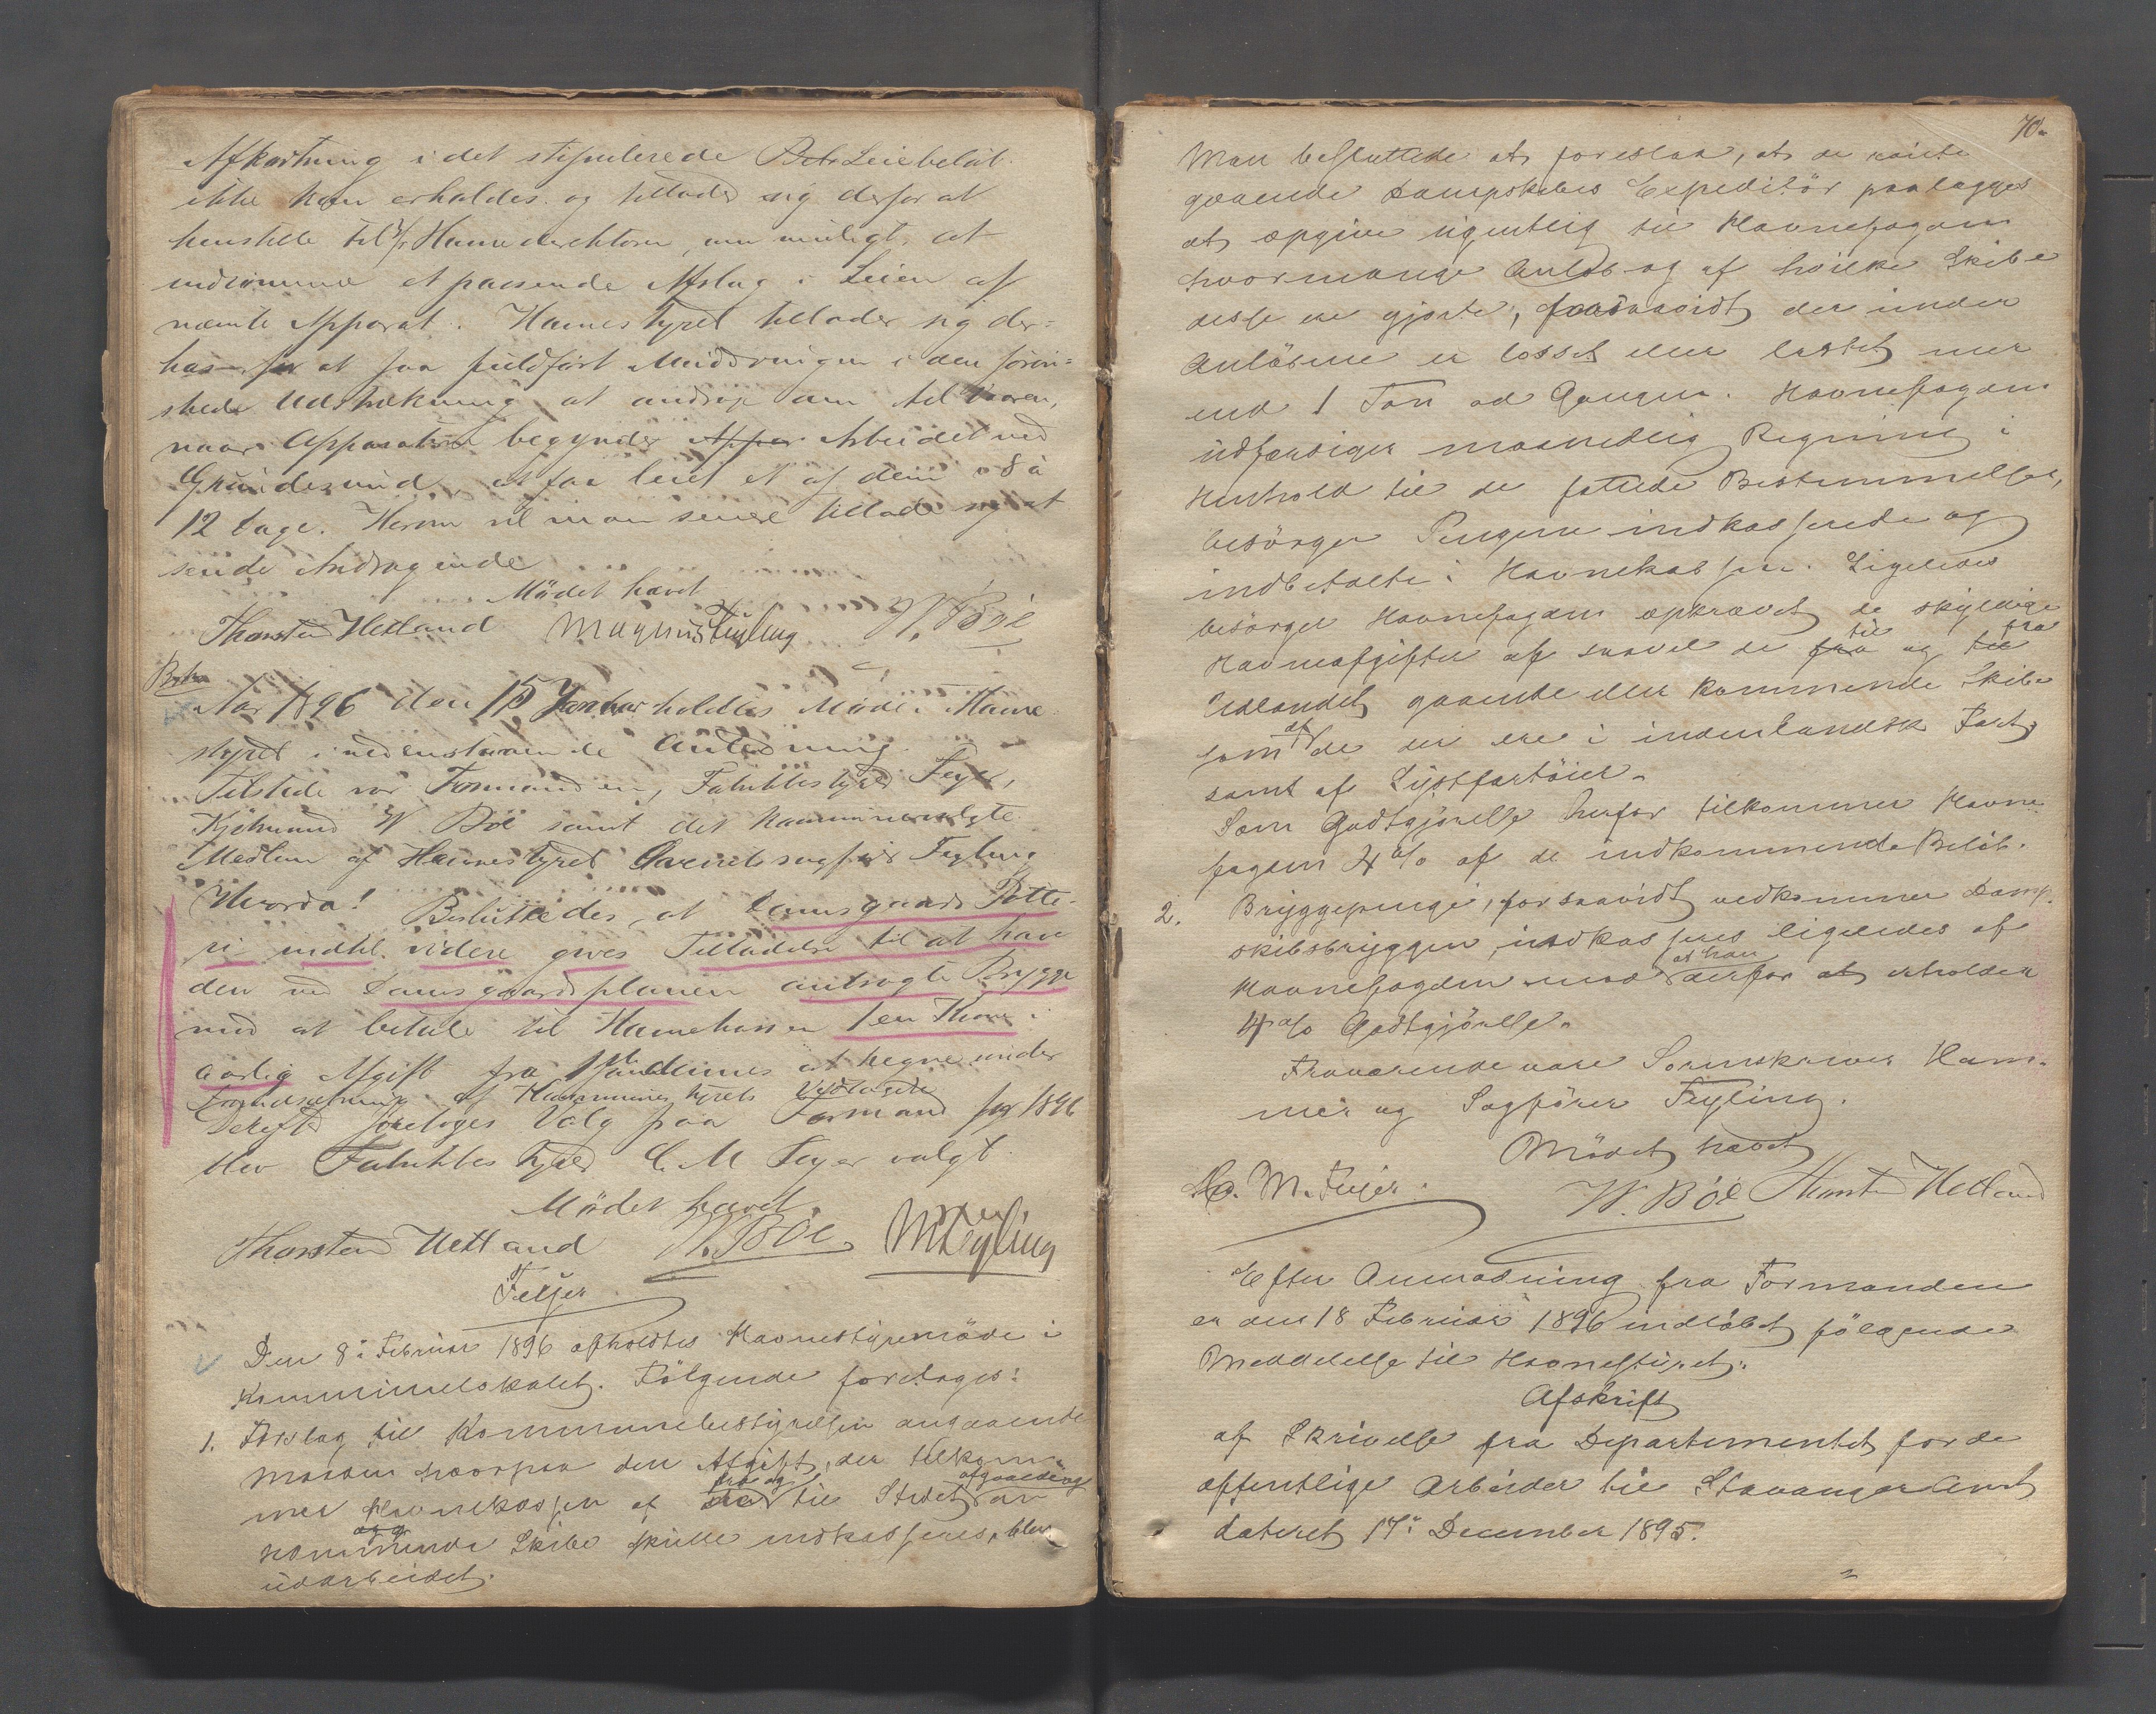 Afkortning i det stipulerede Leiebelöb
ikke kan erholdes og tillader sig derfor at
henstille til Havnedirektören, om muligt, at
indrömme et passende Afslag i Leien af
nævnte Apparat. Havnestyret tillader sig der=
hos for at faa fuldfört Mudringen i den fören=
skede Udstrækning at andrage om til Vaaren,
naar Apparaterne begynder Appar Arbeidet ved
Grundesund, at faa leiet et af dem i 8 à
12 Dage. Herom vil man senere tillade sig at
sende Andragende
Mödet hævet
Thorsten Hetland Magnus Feyling W. Böe
Aar 1896 den 15 Januar holdtes Möde i Havne
styret i nedenstaaende Anledning.
Tilstede var Formanden, Fabrikbestyrer Feyer,
Kjöbmand W. Böe samt det kommunevalgte
Medlem af Havnestyret Overretssagförer Feyling
Hvorda! Besluttedes, at Damsgaards Potte-
ri indtil videre gives Tilladelse til at have
den ved Damsgaardsplanen antragte Brygge
mod at betale til Havnekassen 1 en Krone i
aarlig Afgift fra at regne under
Forudsætning af Kommunestyrets Vedtagelse
Derefter foretoges Valg paa Formand for 1896
blev Fabrikbestyrer C. M Feyer valgt.
Mödet hævet.
Thorsten Hetland W. Böe M Feyling
Feyer
Den 8: Februar 1896 afholdtes Havnestyremöde i
Kommunelokalet. Fölgende foretoges:
1. Forslag til Kommunebestyrelsen angaaende
Maaden hvorpaa den Afgift, der tilkom-
fra og afgaaende og
mer Havnekassen af de til Stedet an
kommende Skibe skulle indkasseres, blev
udarbeidet.
70.
Man besluttede at foreslaa, at de ruute
gaaende Dampskibes Expeditör paalægges
at opgive ugentlig til Havnefogden
hvormange Anlöb og af hvilke Skibe
disse ere gjorte, forsaavidt der under
Anlöbene er losset eller lastet mer
end 1 Ton ad Gangen. Havnefogden
udfærdiger maanedlig Regning i
Henhold til de fattede Bestemmelser,
besörger Pengene indkasserede og
indbetalte i Havnekassen. Ligeledes
besörger Havnefogden opkrævet de skyldige
til fra
Havneafgifter af saavel de fra og til
Udlandet gaaende eller kommende Skibe
af
som de der ere i indenlandsk Fart,
samt af Lystfartöier.
Som Godtgjörelse herfor tilkommer Havne-
fogden 4% af de indkommende Belöb.
2. Bryggepenge, forsaavidt vedkommer Damp-
skibsbryggen, indkasseres ligeledes af
at han
Havnefogden mod derfor at erholder
4% Godtgjörelse.
Fraværende vare Sorenskriver Ham-
mer og Sagförer Feyling.
Mödet hævet
C. M. Feyer. W. Böe Thorsten Hetland
Efter Anmodning fra Formanden
er den 18 Februar 1896 indlöbet fölgende
Meddelelse til Havnestyret:
Afskrift
af Skrivelse fra Departementet for de
offentlige Arbeider til Stavanger Amt
dateret 17: December 1895.